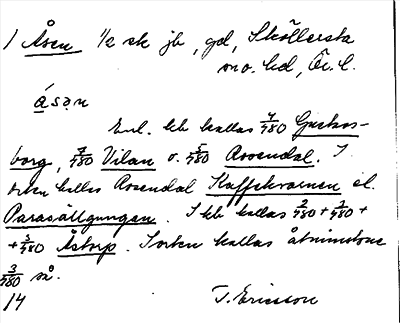 1 Åsen 1/2 sk jb, gd, Sköllersta
sn o. hd, Ör. l.
åsən
Enl. kb kallas 7/480 Gustavs-
borg, 7/480 Vilan o. 5/480 Rosendal. I
orten kallas Rosendal Kaffekvarnen el.
Parasällgungan. I kb kallas 2/480 + 3/480 +
+ 3/480 Åstorp. I orten kallas åtminstone
3/480 så.
14 T. Ericsson